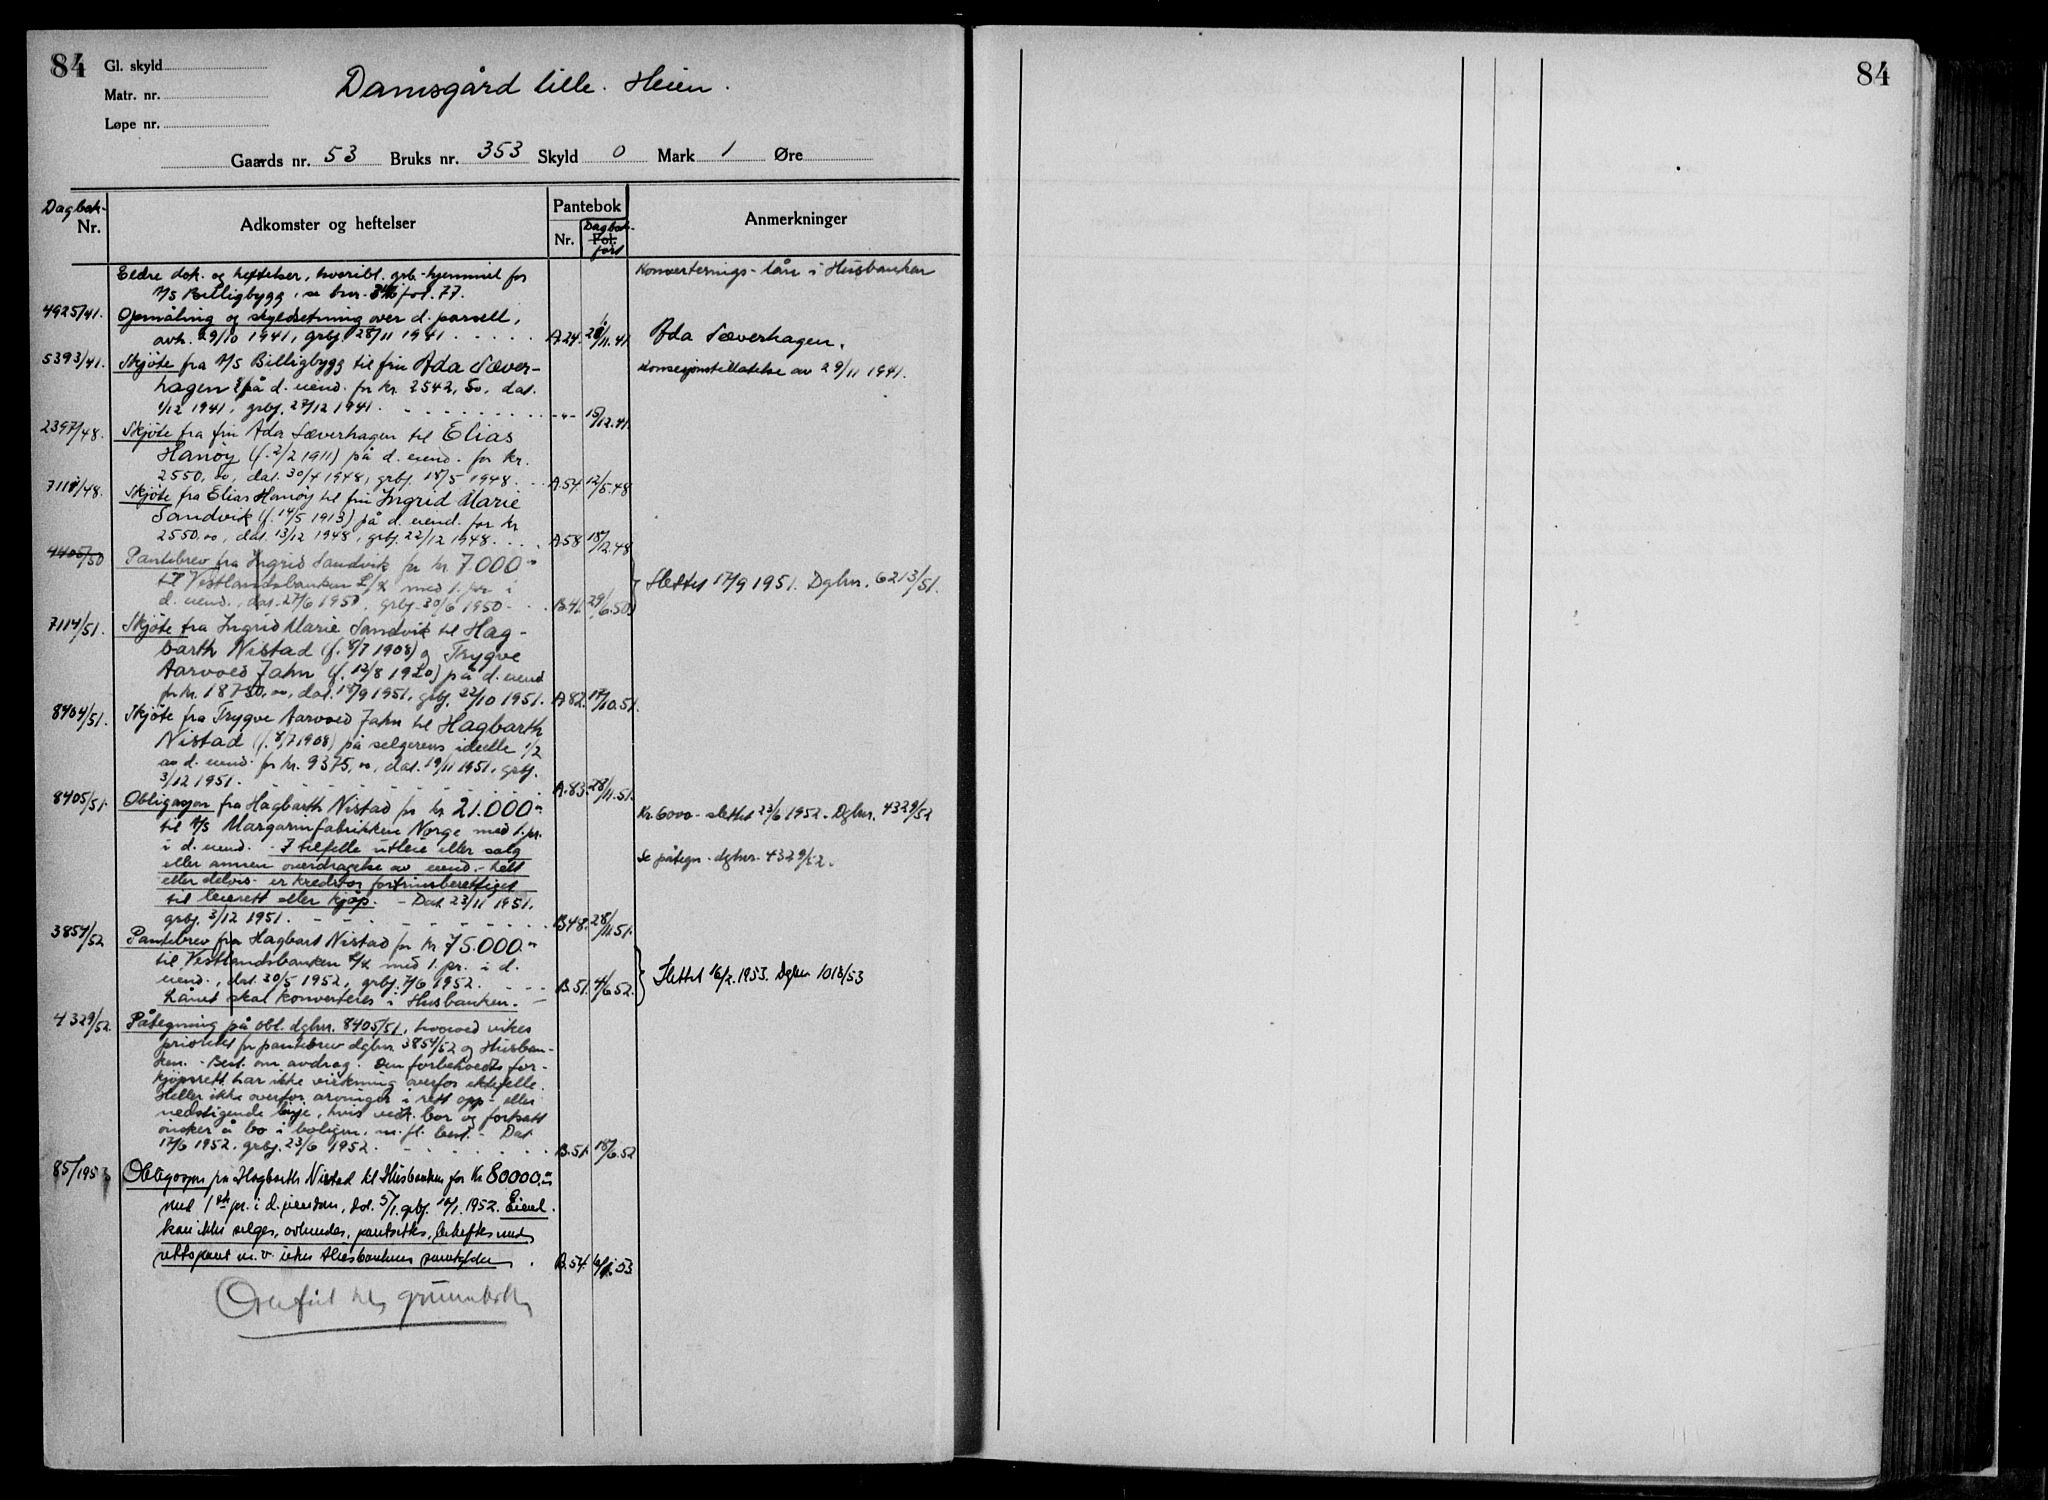 84
Gl. skyld
Matr. nr.
Løpe nr.
Damsgård lille. Heien.
Gaards nr. 53 Bruks nr. 353 Skyld 0 Mark 1 Øre
Dagbok-
Nr.
Adkomster og heftelser
Pantebok
Nr.
Fol.
Dagbok-
ført
Anmerkninger
Eldre dok. og heftelser, hvoribl. grb-hjemmel for
A/S Billigbygg, se bnr. fol. 77.
Konverterings-lån i Husbanken
4925/41. Opmåling og skyldsetning over d. parsell,
avh. 29/10 1941, grbj. 28/11 1941 A.24. /11.41
Ada Sæverhagen.
5393/41. Skjøte fra A/S Billigbygg til fru Ada Sæver-
hagen på d. eiend. for kr. 2542,50, dat.
1/12 1941, grbj. 27/12 1941. -"- 15/12.41.
Konsesjonstillatelse av 29/11 1941.
2397/48. Skjøte fra fru Ada Sæverhagen til Elias
Hanøy (f. 2/2 1911) på d. eiend. for kr.
2550,00, dat. 30/4 1948, grbj. 18/5 1948. A.54 12/5.48
7118/48. Skjøte fra Elias Hanøy til fru Ingrid Marie
Sandvik (f. 14/5 1913) på d. eiend. for kr
2550,00, dat. 13/12 1948, grbj. 22/12 1948. A.58 18/12.48
4405/50 Pantebrev fra Ingrid Sandvik for kr 7000.-
til Vestlandsbanken L/L med 1. pr. i
d. eiend., dat. 27/6 1950, grbj. 30/6 1950 B.41. 29/6.50
Slettet 17/9 1951. Dgbnr. 6213/51.
7114/51. Skjøte fra Ingrid Marie Sandvik til Hag-
barth Nistad (f. 8/7 1908) og Trygve
Aarvold Jahn (f. 12/8 1920) på d. eiend
for kr. 18750,00, dat. 18/9 1951, grbj. 22/10 1951. A.82. 17/10.51.
8404/51. Skjøte fra Trygve Aarvold Jahn til Hagbarth
Nistad (f. 8/7 1908) på selgerens ideelle 1/2
av d. eiend. for kr. 9375,00, dat. 19/11 1951, grbj.
3/12 1951. A.83. 28/11.51.
8405/51. Obligasjon fra Hagbarth Nistad for kr 21.000.-
til A/S Margarinfabrikken Norge med 1. pr.
i d. eiend. - I tilfelle utleie eller salg
eller annen overdragelse av eiend. - helt
eller delvis - er kreditor fortrinsberettiget
til leierett eller kjøp. - Dat 23/11 1951,
grbj. 3/12 1951. B.48. 28/11.51.
Kr. 6000.- slettet 23/6 1952. Dgbnr. 4329/52
Se påtegn. dgbnr. 4329/52.
3854/52 Pantebrev fra Hagbart Nistad for kr. 75.000.-
til Vestlandsbanken L/L med 1. pr. i d.
eiend., dat. 30/5 1952, grbj. 7/6 1952. B.51. 4/6.52.
Lånet skal konverteres i Husbanken.
Slettet 16/2.1953. Dgbnr 1018/53
4329/52. Påtegning på obl. dgbnr. 8405/51, hvorved vikes
prioritet for pantebrev dgbnr 3854/52 og Husban-
ken. - Best. om avdrag. Den forbeholdte for-
kjøpsrett har ikke virkning overfor ektefelle.
Heller ikke overfor arvinger i rett opp- eller
nedstigende linje, hvis vedk. bor og fortsatt
ønsker å bo i boligen. m. fl. best. - Dat
17/6 1952. grbj. 23/6 1952. B.51. 18/6.52
85/1953 Obligasjon fra Hagbarth Nistad til Husbanken for kr 80000.-
med 1ste pr. i d. eiendom, dat. 5/1. grbj. 1952. Eiend.
kan ikke selges, avhendes, pantsettes, beheftes med
rettspant m. v. uten Husbankens samtykke. B.54. 6/1.53
Overført til grunnboken
84